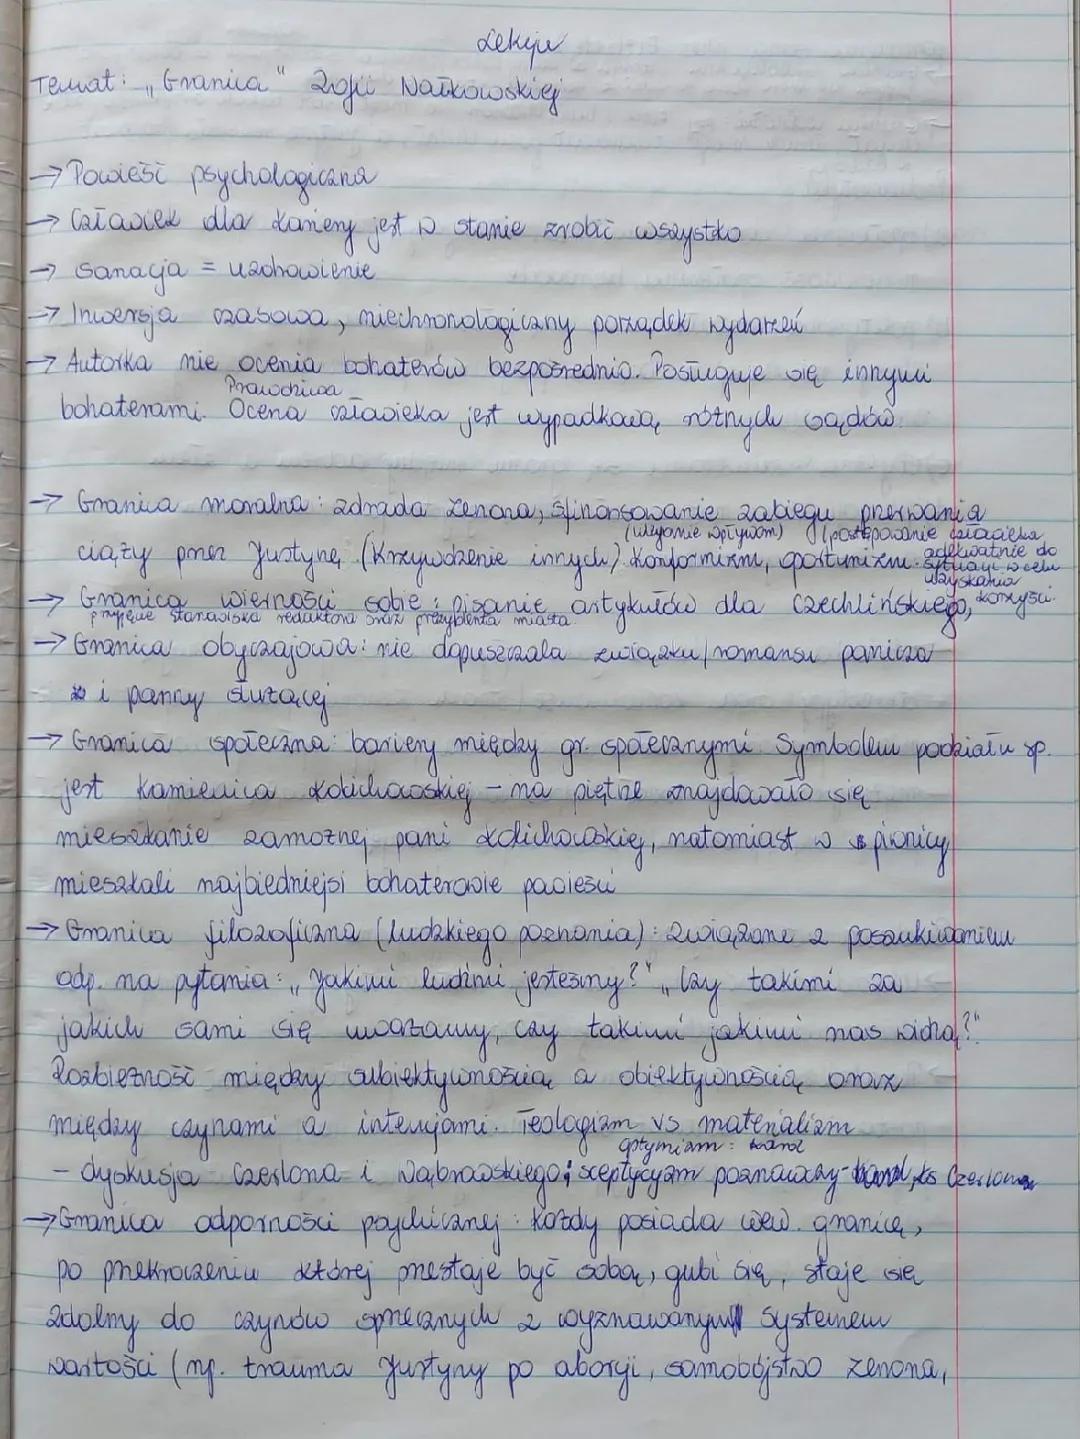 Lekcja
Temat: „Granica" Zofii Nałkowskiej
→ Powieść psychologiczna
→ Człowiek dla kariery jest w stanie zrobić wszystko
→ Sanacja = uzdrowienie
→ Inwersja czasowa, niechronologiczny porządek wydarzeń
→ Autorka nie ocenia bohaterów bezpośrednio. Posługuje się innymi
Prawdziwa
bohaterami. Ocena człowieka jest wypadkową różnych sądów.
→ Granica moralna: zdrada Zenona, sfinansowanie zabiegu przerwania
(uleganie wpływom) (postępowanie człowieka
ciąży przez Justynę. (Krzywdzenie innych) Konformizm, oportunizm.
adekwatnie do
sytuacji w celu
uzyskania
korzyści.
→ Granica wierności sobie: pisanie artykułów dla Czechlińskiego,
przyjęcie stanowiska redaktora oraz prezydenta miasta.
→ Granica obyczajowa: nie dopuszczała związku/romansu panicza
i panny służącej
→ Granica społeczna: bariery między gr. społecznymi. Symbolem podziału sp.
jest kamienica Kolichowskiej – na piętrze znajdowało się
mieszkanie zamożnej pani Kolichowskiej, natomiast w piwnicy
mieszkali najbiedniejsi bohaterowie powieści
→ Granica filozoficzna (ludzkiego poznania): związane z poszukiwaniem
odp. na pytania: „Jakimi ludźmi jesteśmy?" „Czy takimi za
jakich sami się uważamy, czy takimi jakimi nas widzą?"
Rozbieżność między subiektywnością a obiektywnością oraz
między czynami a intencjami. Teologizm vs materializm
optymizm: Karol
– dyskusja Czerlona i Wąbrowskiego; sceptycyzm poznawczy - ks Czerlon
→ Granica odporności psychicznej: każdy posiada wew. granicę,
po przekroczeniu której przestaje być sobą, gubi się, staje się
zdolny do czynów sprzecznych z wyznawanym systemem
wartości (np. trauma Justyny po aborcji, samobójstwo Zenona,